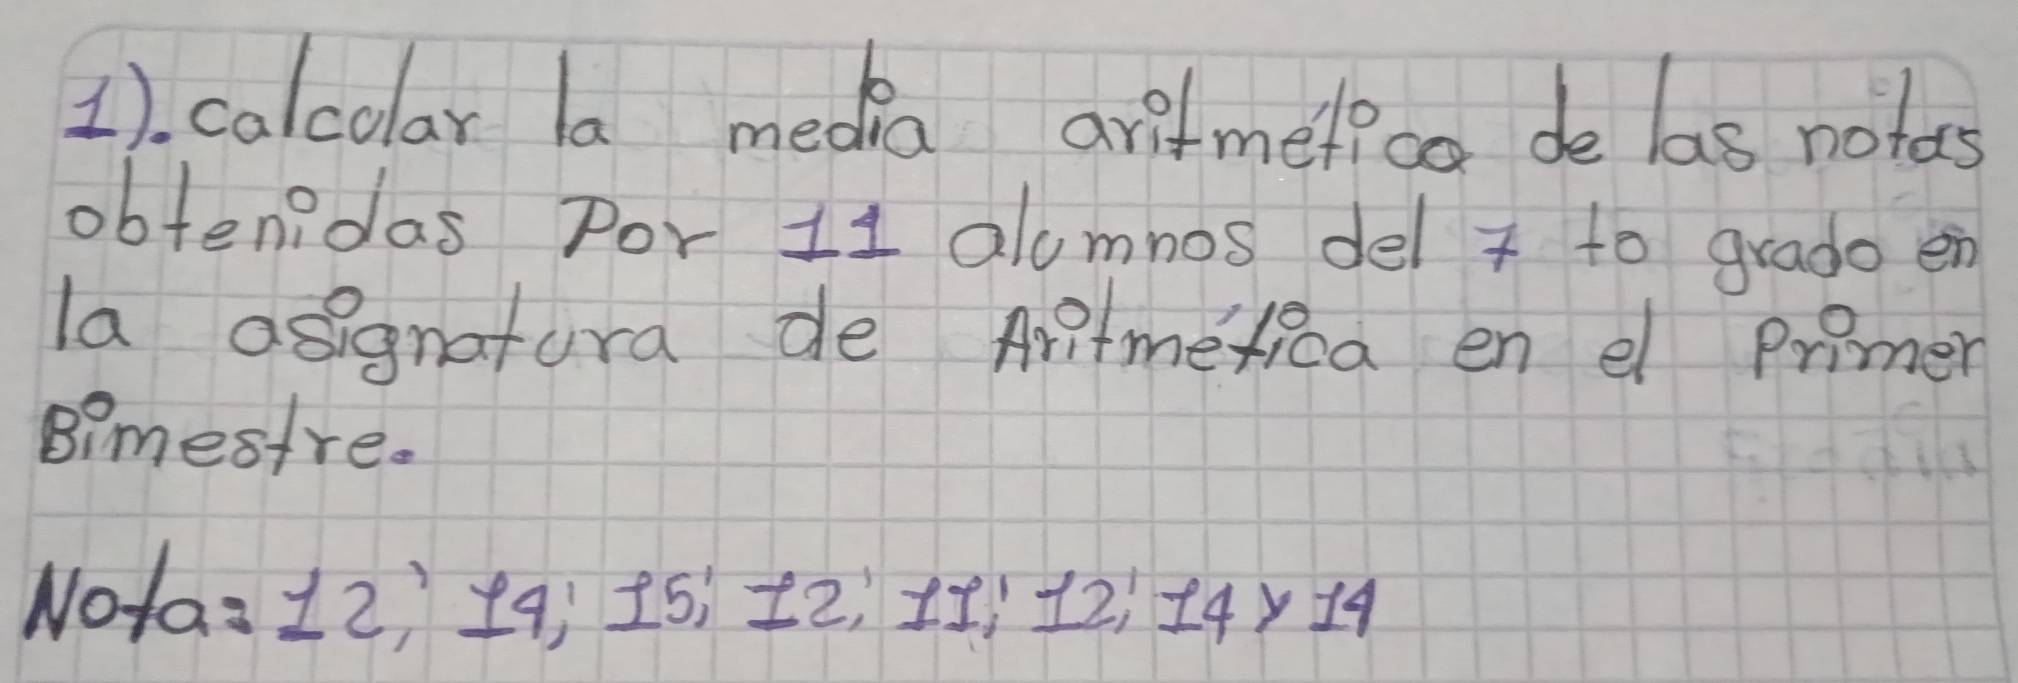 1). calcular la media aritmética de las notas
obtenidas Por 11 alumnos del 7 to grado en
la asignatura de Aritmética en el Primer
Bimestre.
Nota: 12; 14; 15; 12; 11; 12; 14 y 14